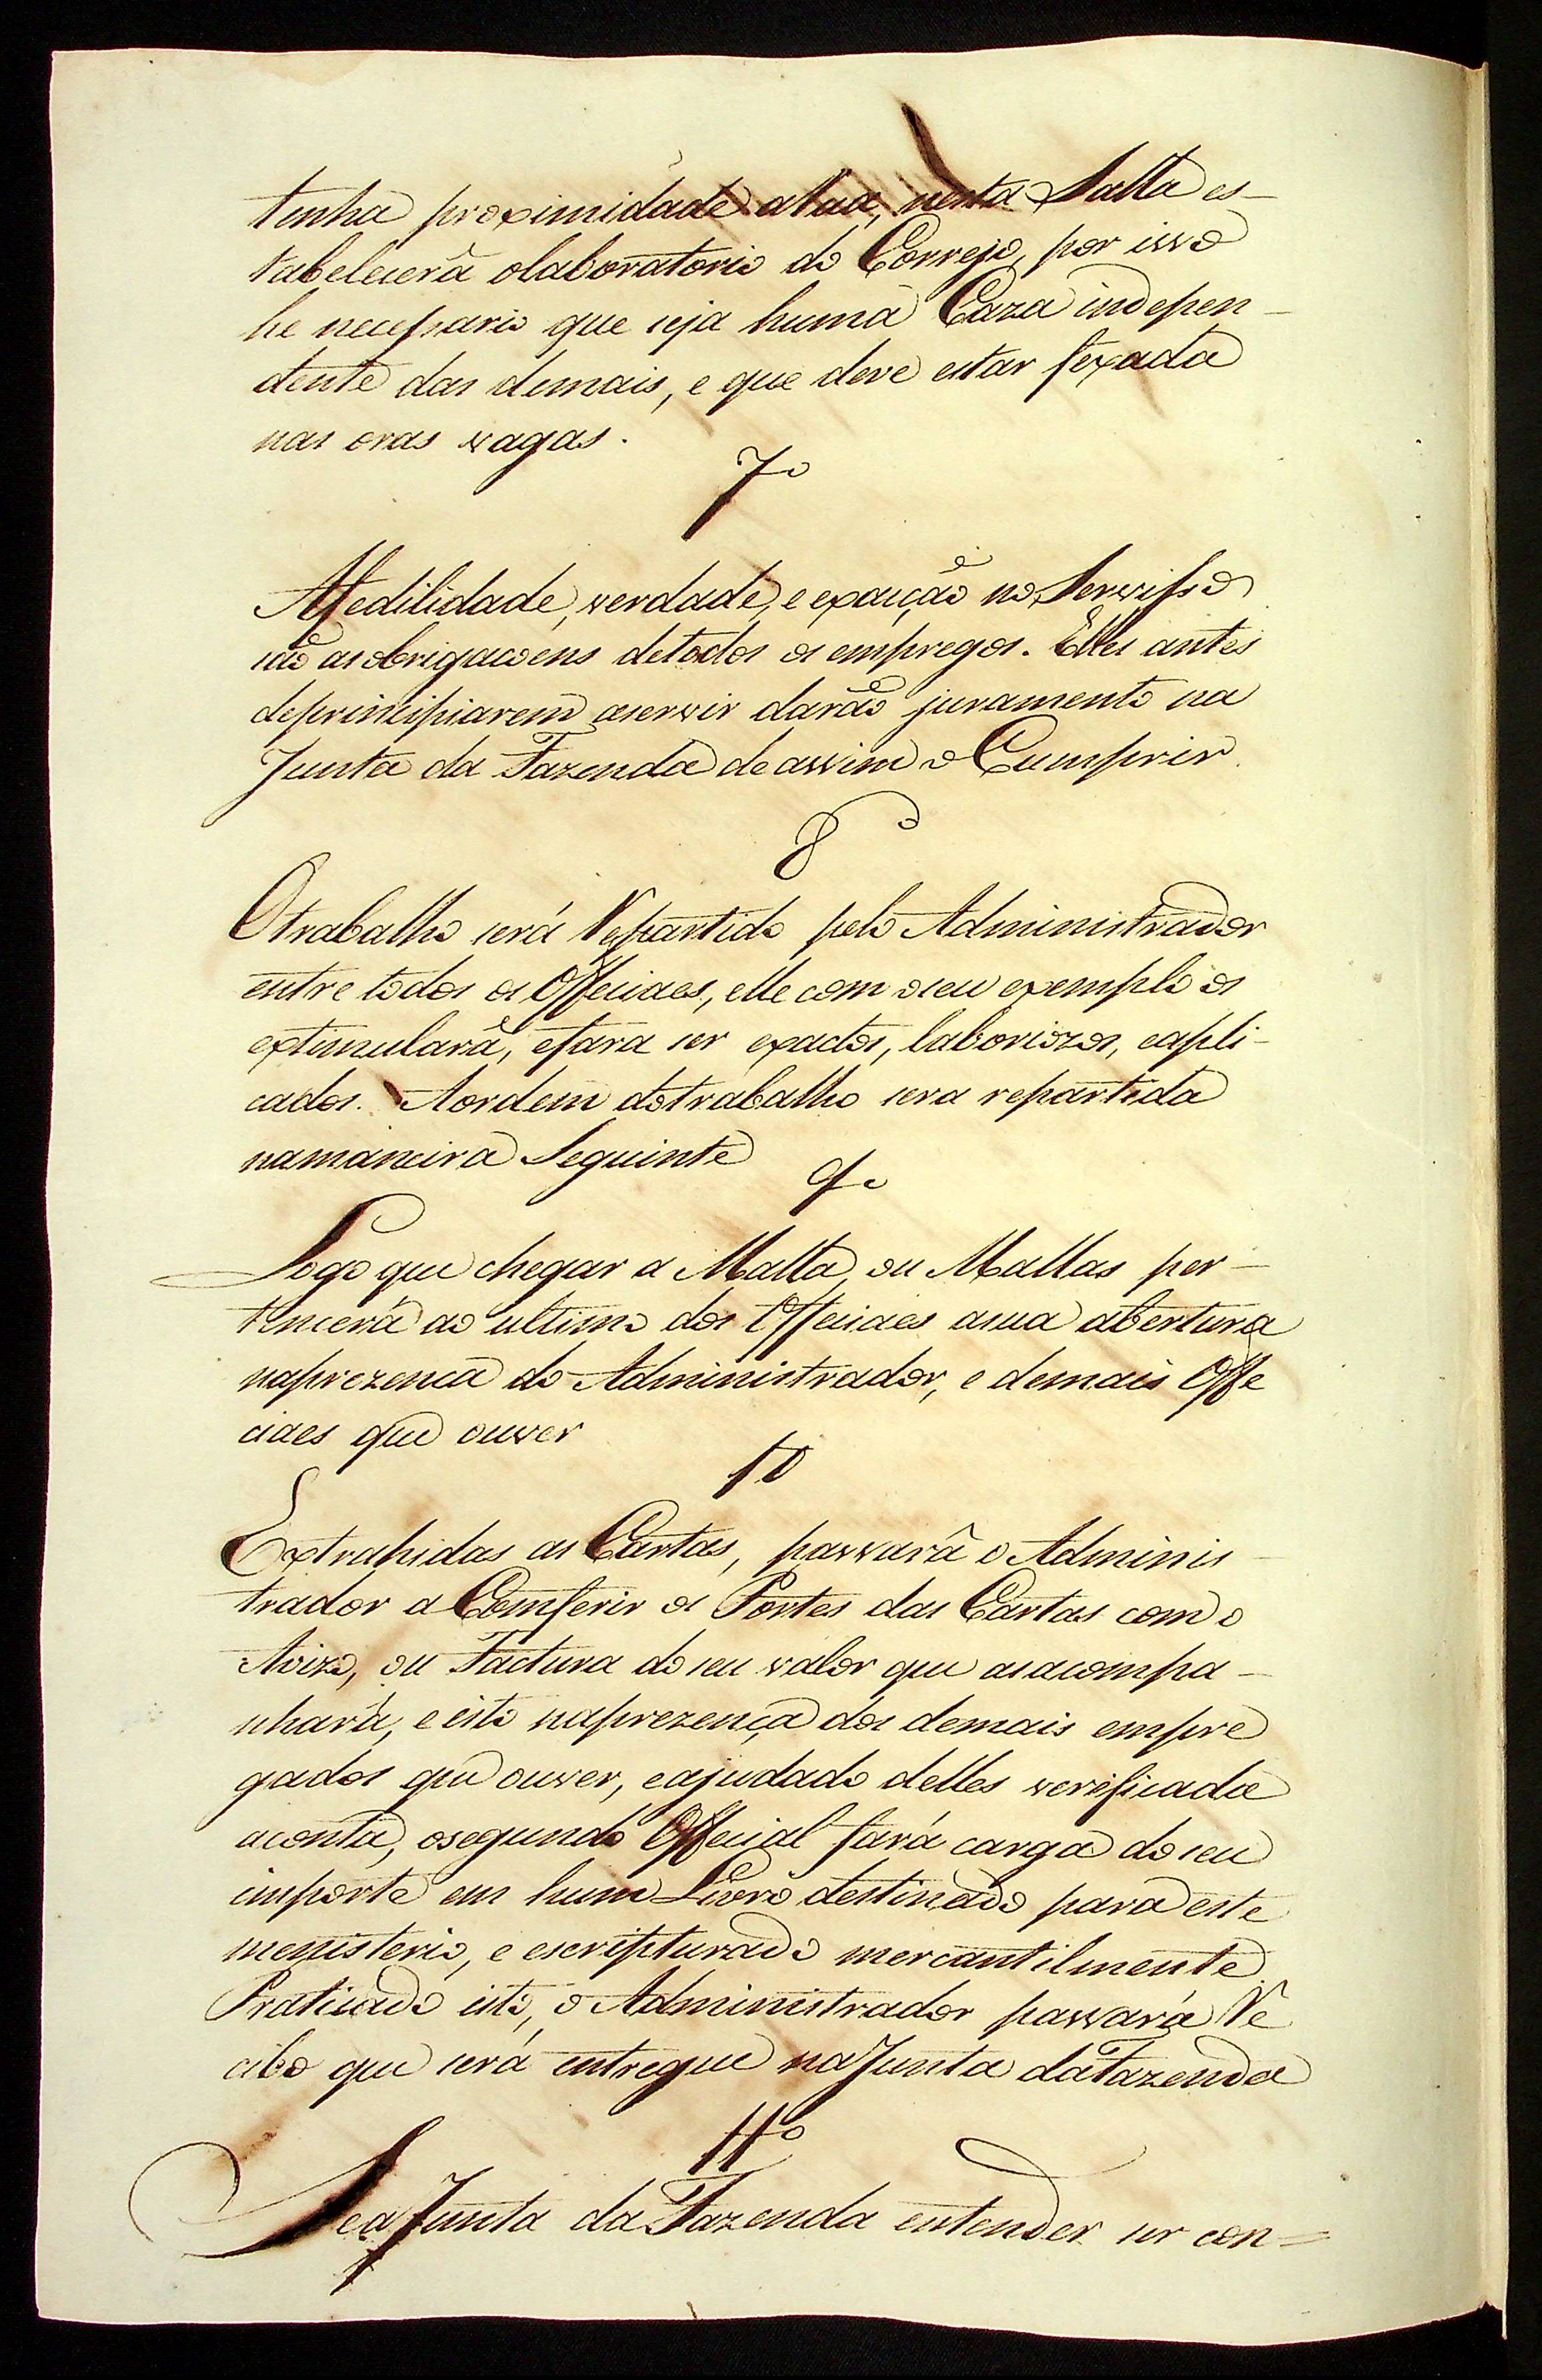 tenha proximidade a Rua, nesta Salla es-
tabelecerâ olaboratorio do Correjo, por isso
he necessario que seja huma Caza indepen-
dente das demais, e que deve estar fexada
nas oras vagas.
7º
Afedilidade, verdade, e exacçaõ no Serviss
saõ as obrigacoens detodos os empregos. Elles antes
deprincipiarem aservir daraõ juramento na
Junta da Fazenda de assim o Cumprir.
8º
Otrabalho será Repartido pelo Administrador
entre todos os Offeciaes, elle com oseu exemplo os
extimularâ, efara ser exactos, laboriozos, eapli-
cados. Aordem dotrabalho sera repartida
namaneira Seguinte
9º
Logo que chegar a Malla, ou Mallas per-
tencerá ao ultimo dos Offeciaes asua abertura
naprezenca do Administrador, e demais Offe
ciaes que ouver
10
Extrahidas as Cartas, passarâ o Adminis-
trador a Comferir os Portes das Cartas com o
Avizo, ou Factura do seu valor que asacompa-
nharâ, e isto naprezença dos demais empre
gados que ouver, eajudado delles verificada
aconta, osegundo Offecial fará carga do seu
importe em hum Livro destinado para este
menisterio, e escripturado mercantilmente.
Praticado isto, o Administrador passará Re
cibo que será entregue naJunta daFazenda
11º
Sea Junta da Fazenda entender ser con=